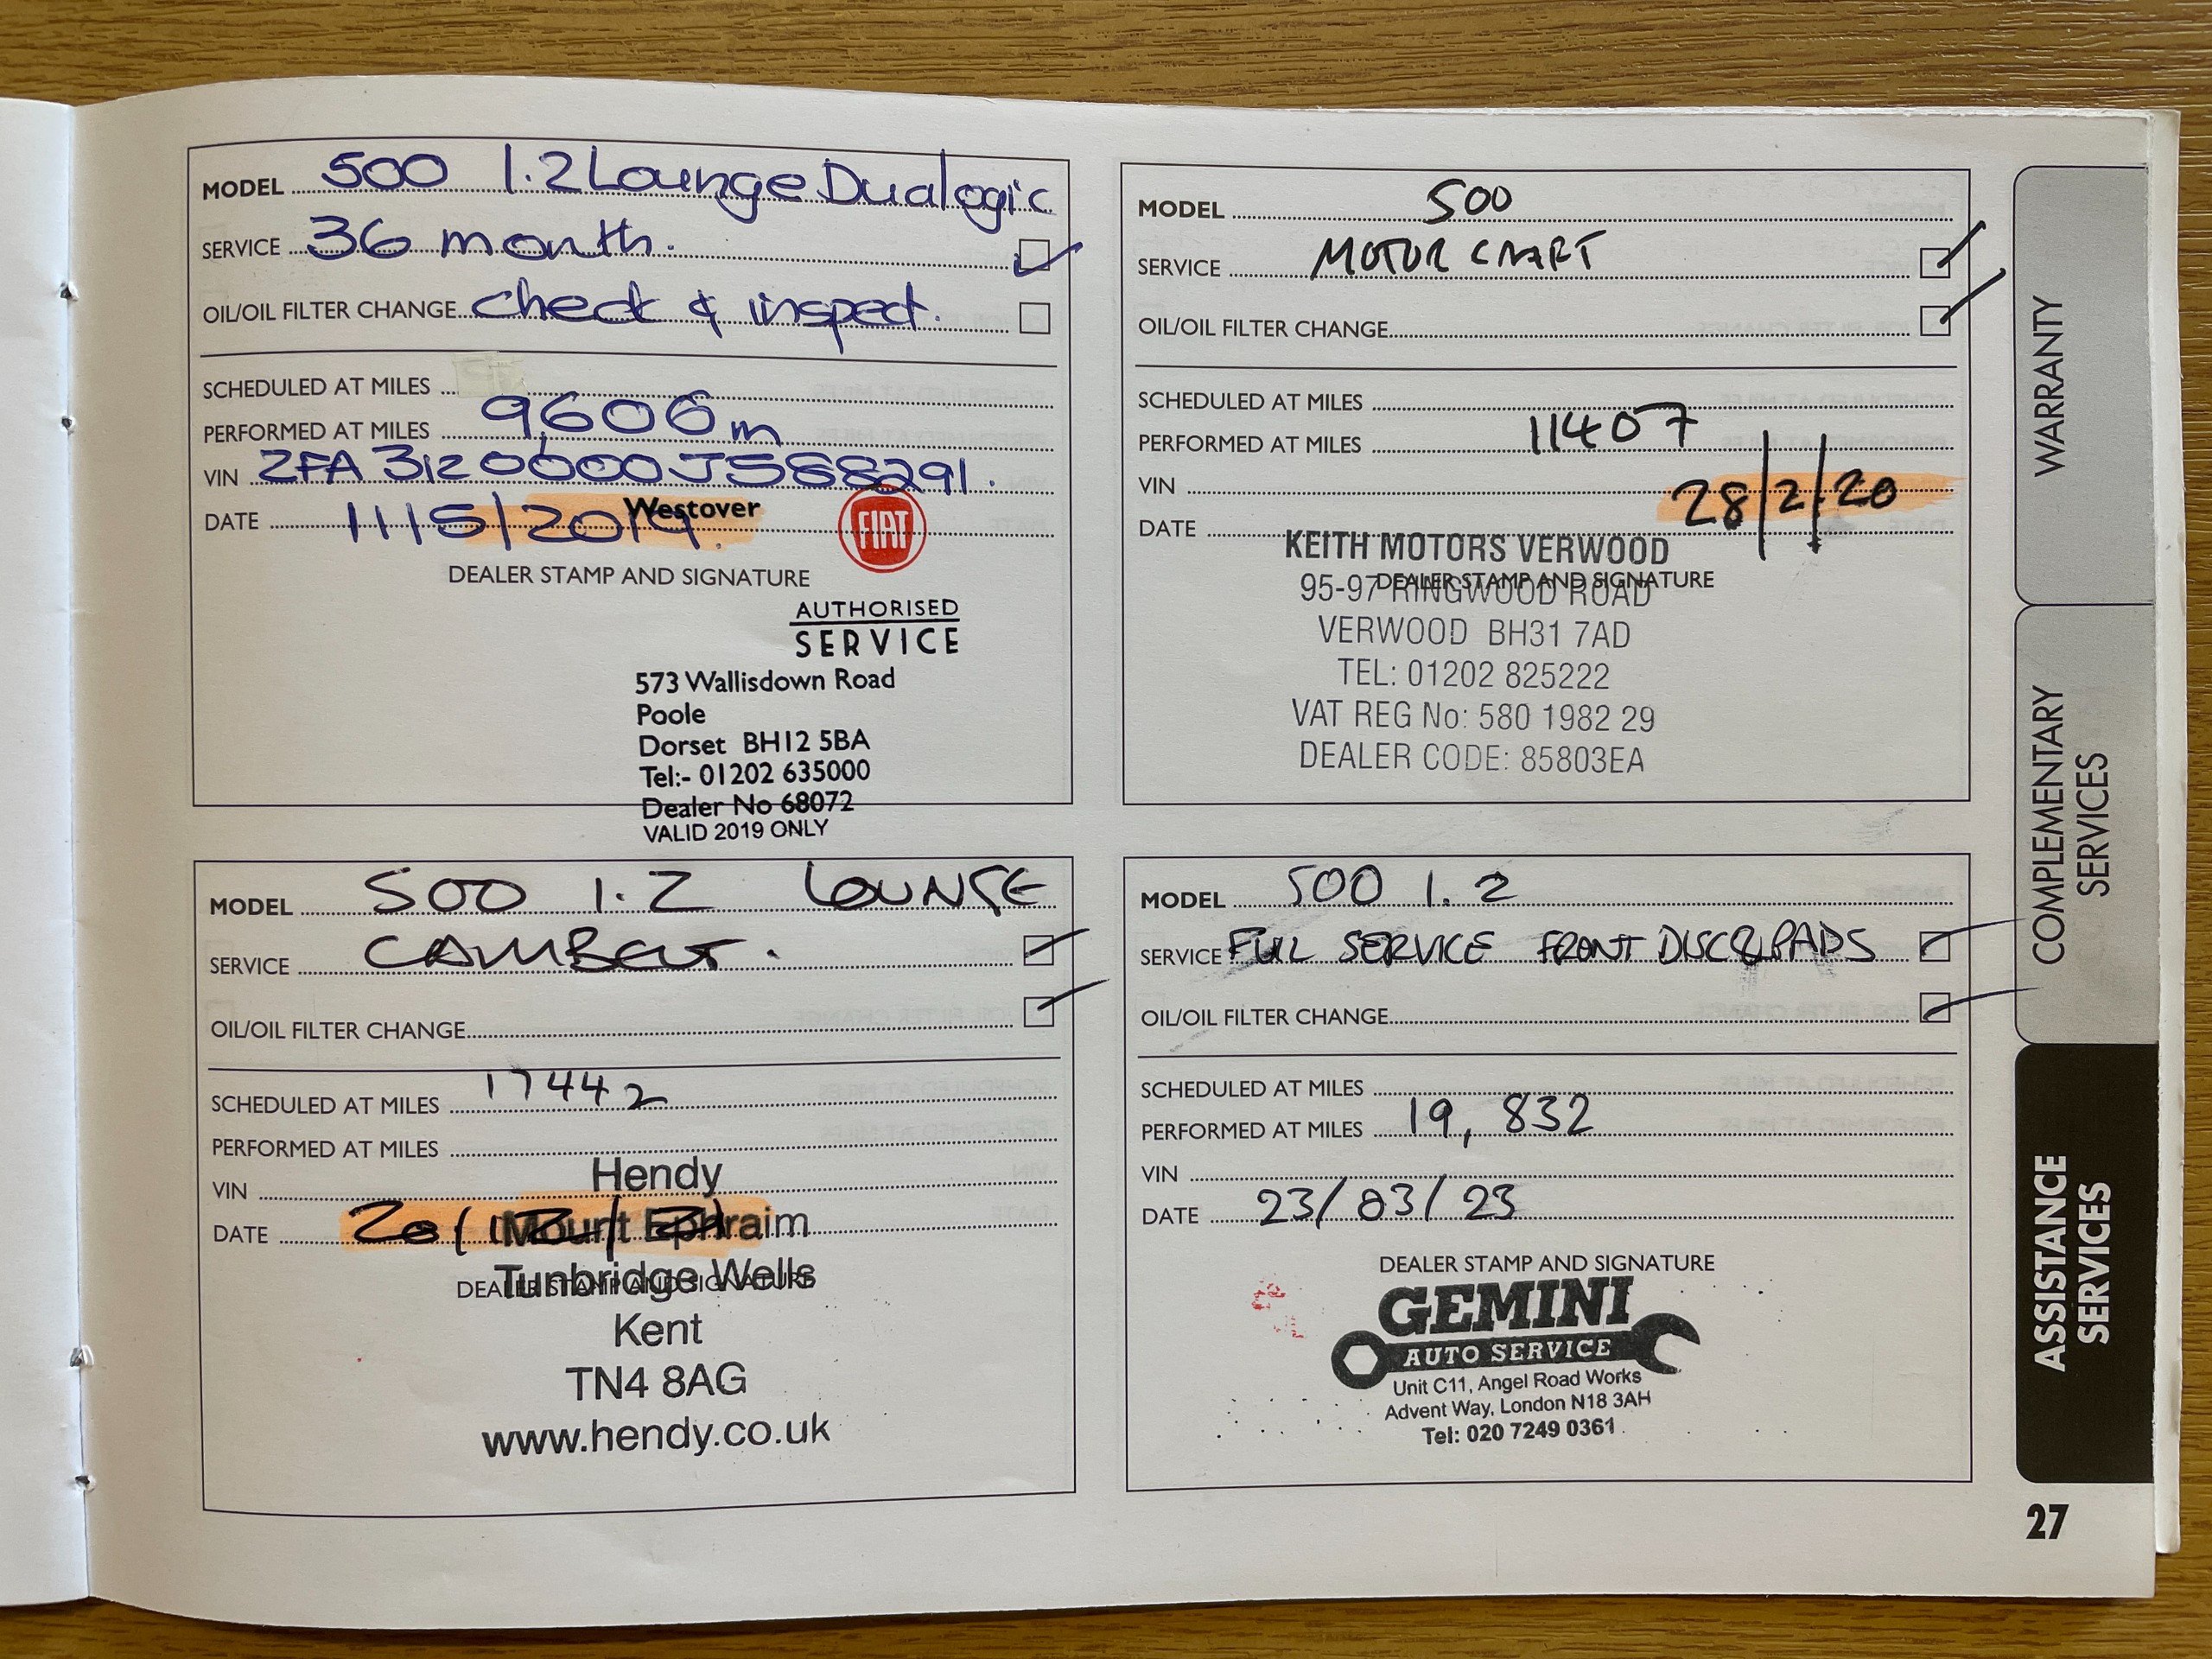 MODEL 500 1.2 Lounge Dualogic
SERVICE 36 month.
OIL/OIL FILTER CHANGE check & inspect.
SCHEDULED AT MILES
PERFORMED AT MILES 9,606m
VIN ZFA3120000J588291.
DATE 11/5/2019.
Westover
FIAT
DEALER STAMP AND SIGNATURE
AUTHORISED
SERVICE
573 Wallisdown Road
Poole
Dorset BH12 5BA
Tel:- 01202 635000
Dealer No 68072
VALID 2019 ONLY
MODEL 500
SERVICE MOTORCRAFT
OIL/OIL FILTER CHANGE
SCHEDULED AT MILES
PERFORMED AT MILES 11407
VIN
DATE 28/2/20
KEITH MOTORS VERWOOD
DEALER STAMP AND SIGNATURE
95-97 RINGWOOD ROAD
VERWOOD BH31 7AD
TEL: 01202 825222
VAT REG No: 580 1982 29
DEALER CODE: 85803EA
MODEL 500 1.2 LOUNGE
SERVICE CAMBELT.
OIL/OIL FILTER CHANGE
SCHEDULED AT MILES 17442
PERFORMED AT MILES
VIN
DATE
Hendy
Mount Ephraim
Tunbridge Wells
DEALER STAMP AND SIGNATURE
Kent
TN4 8AG
www.hendy.co.uk
MODEL 500 1.2
SERVICE FULL SERVICE FRONT DISC&PADS
OIL/OIL FILTER CHANGE
SCHEDULED AT MILES
PERFORMED AT MILES 19,832
VIN
DATE 23/03/23
DEALER STAMP AND SIGNATURE
GEMINI
AUTO SERVICE
Unit C11, Angel Road Works
Advent Way, London N18 3AH
Tel: 020 7249 0361
WARRANTY
COMPLEMENTARY
SERVICES
ASSISTANCE
SERVICES
27